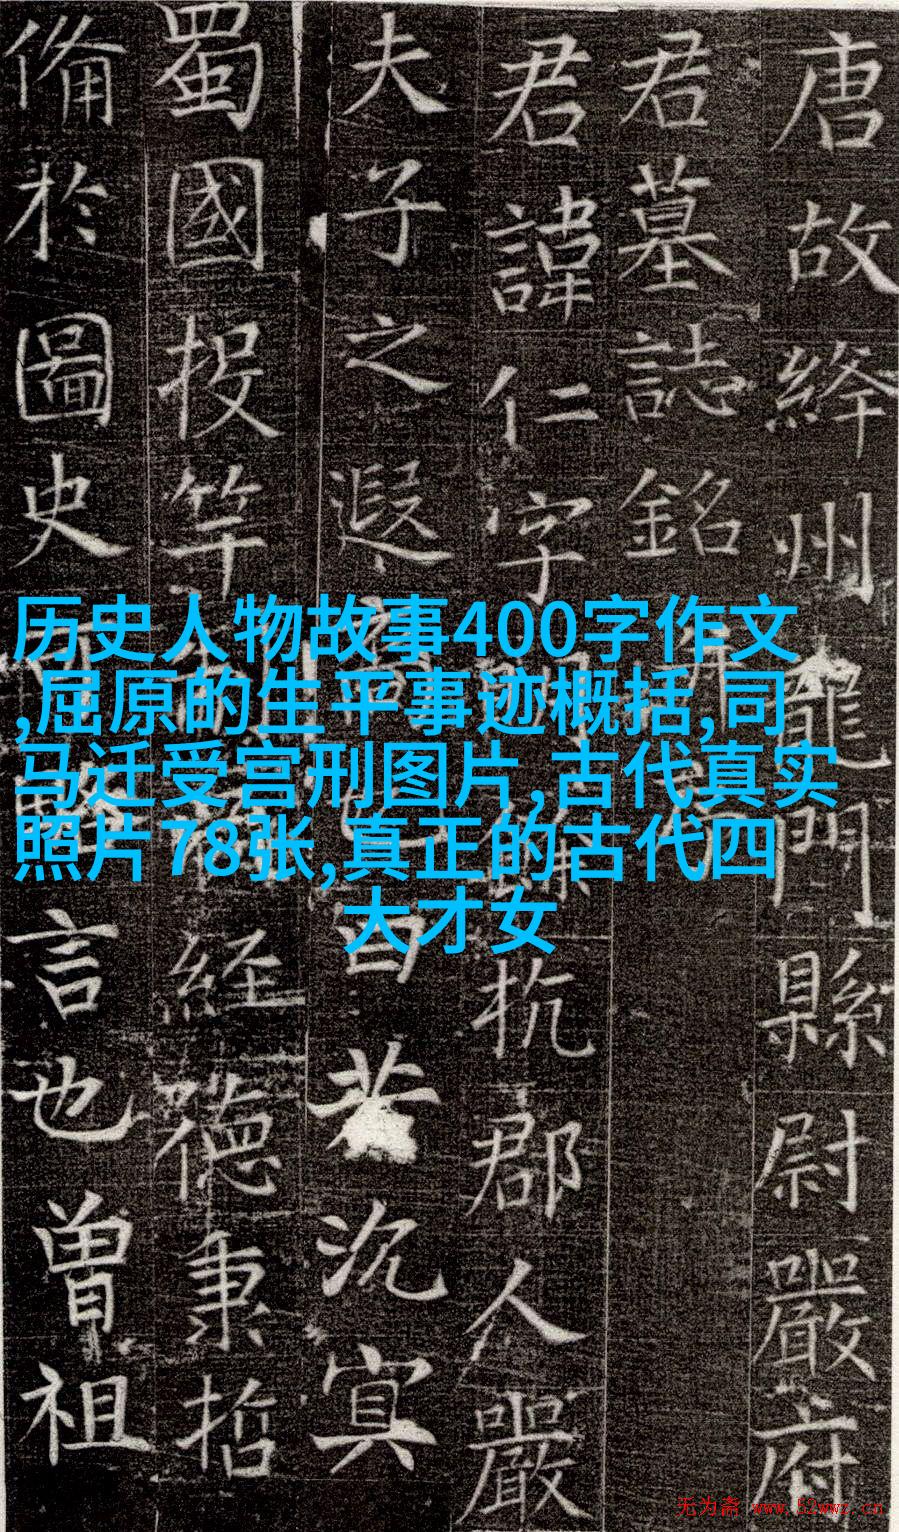 唐故絳州龍門縣尉嚴府
君墓誌銘
君諱仁字 杭郡人嚴
夫子之遐 自若沉冥
蜀國投竿 経德秉哲
備於圖史 言也曾祖
历史人物故事400字作文
,屈原的生平事迹概括,司
马迁受宫刑图片,古代真实
照片78张,真正的古代四
大才女
无为斋 www.52wwz.cn